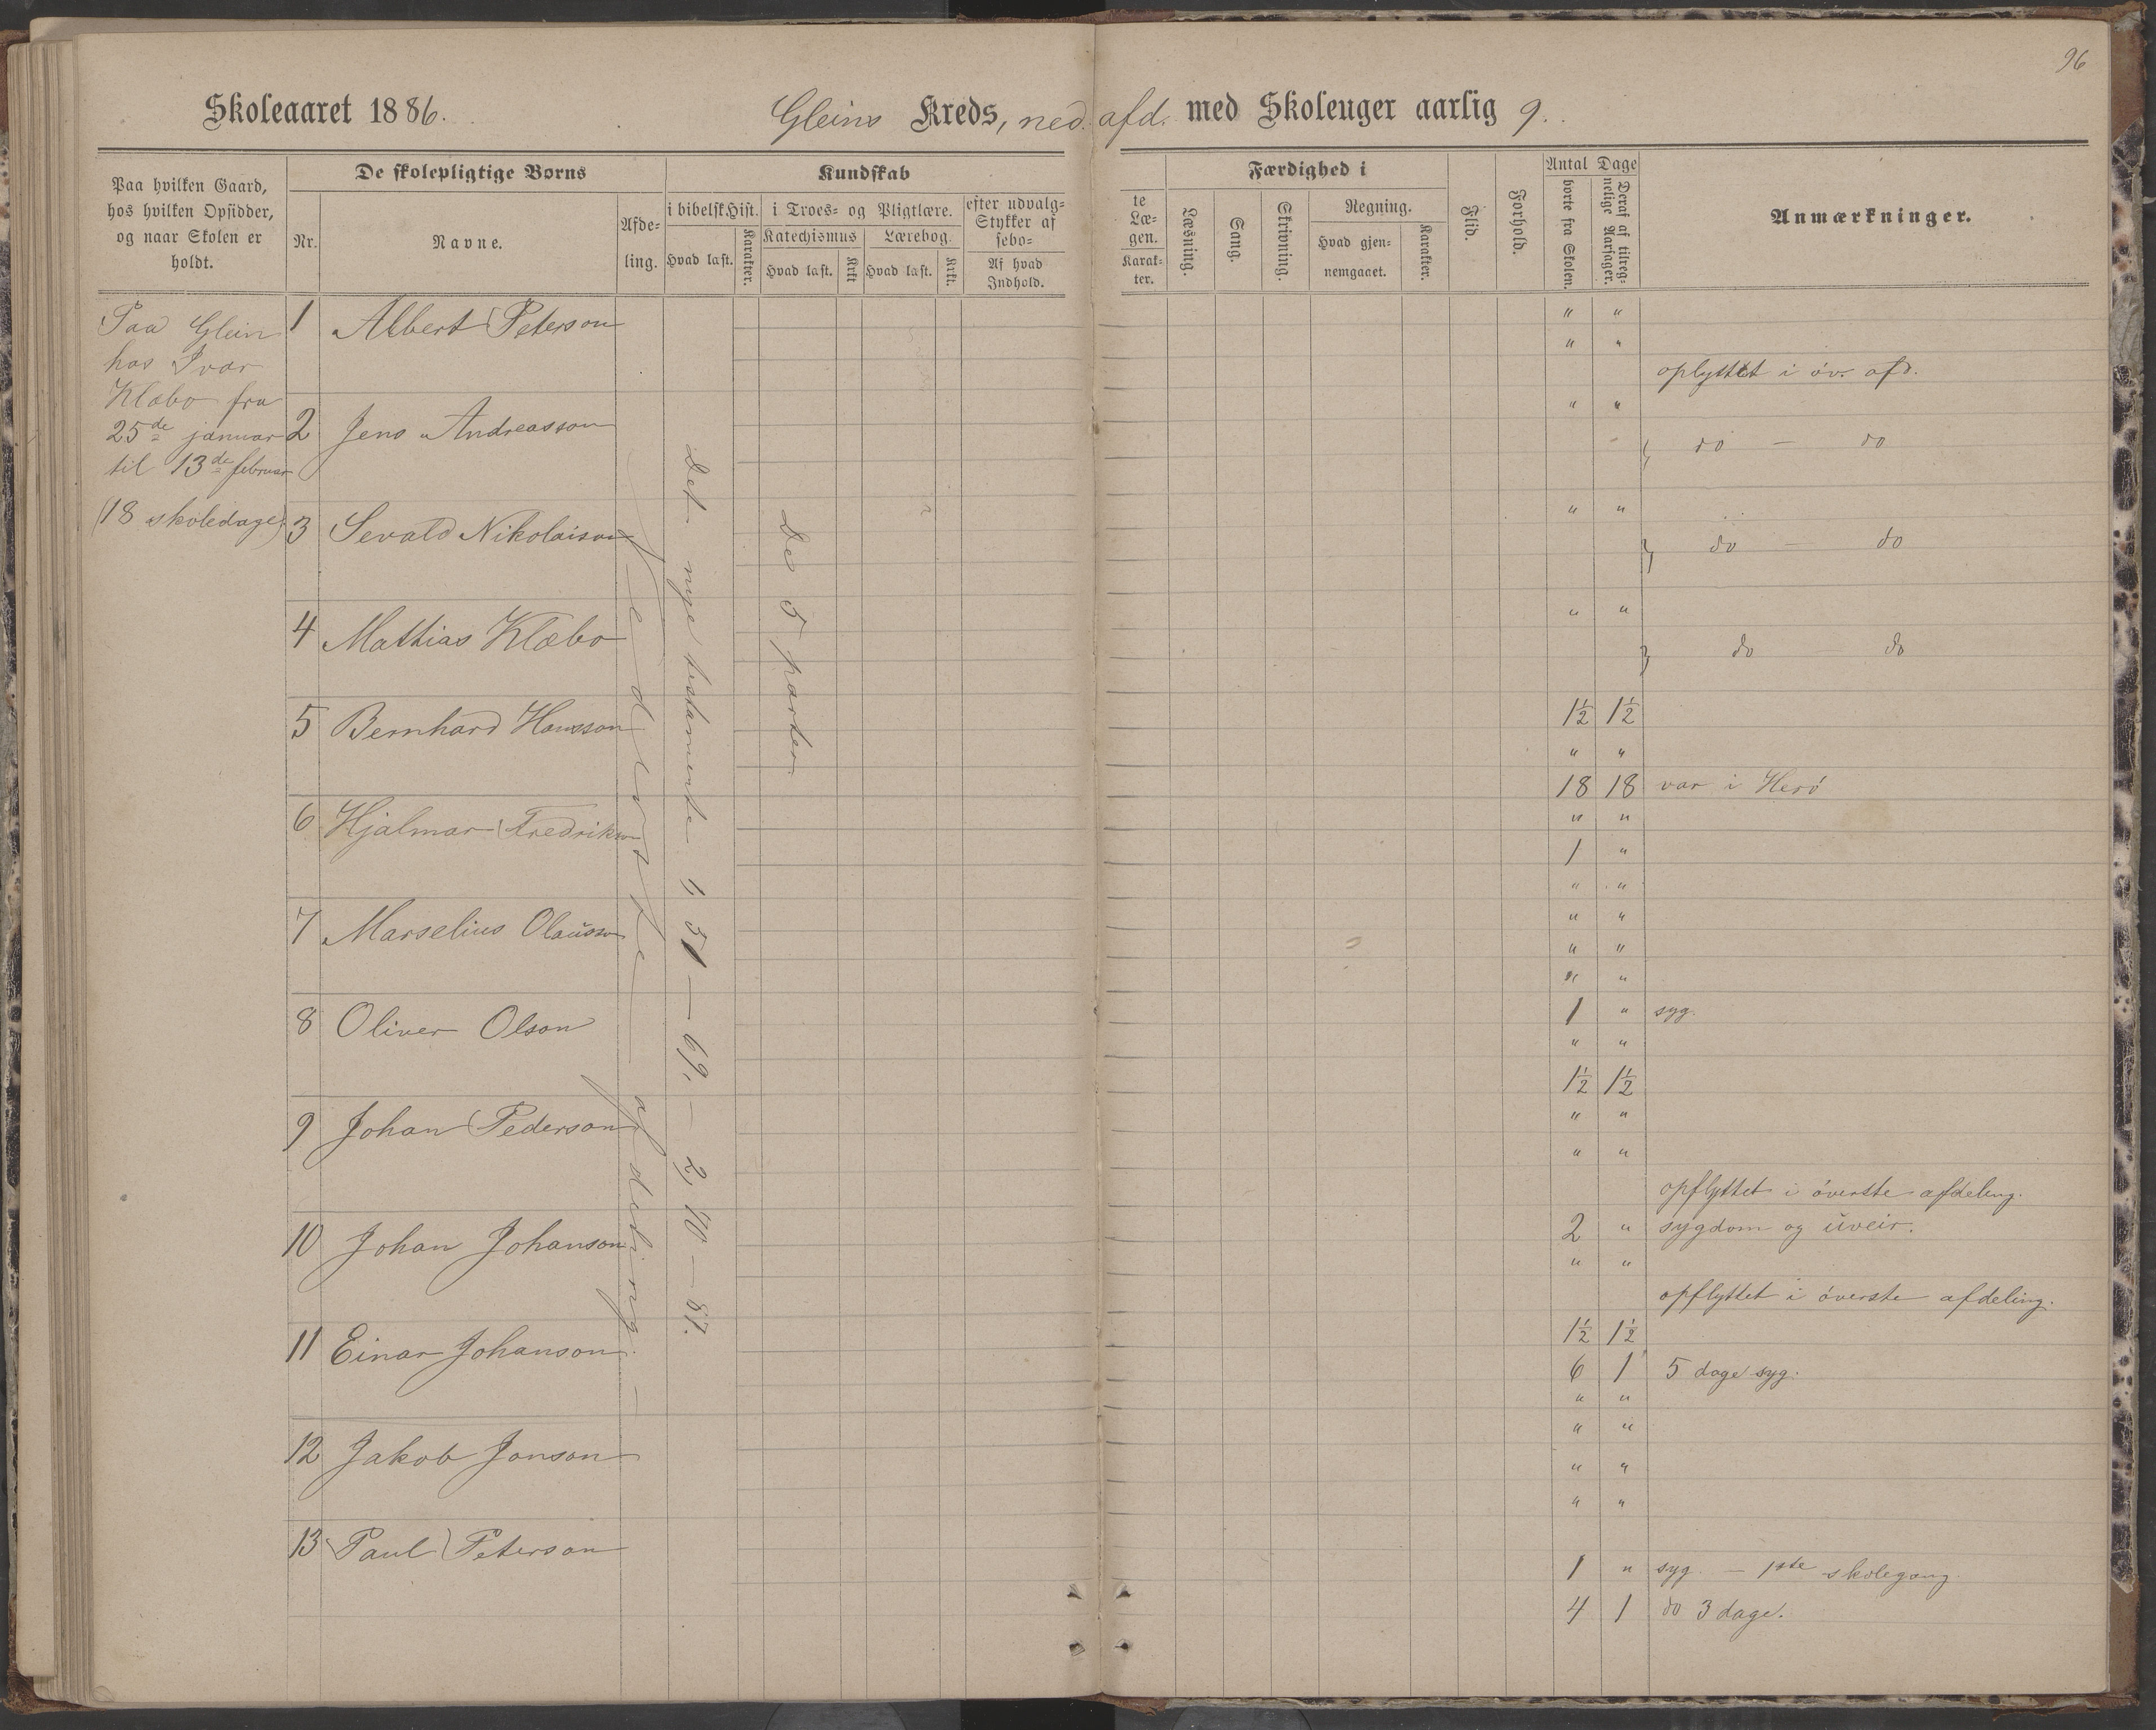 96
Skoleaaret 1886.
Gleins Kreds, ned. afd. med Skoleuger aarlig 9.
Paa hvilken Gaard,
hos hvilken Opsidder,
og naar Skolen er
holdt.
De skolepligtige Børns
Nr.
Navne.
Afde-
ling.
Kundskab
i bibelsk Hist.
Hvad læst.
Karakter.
i Troes- og Pligtlære.
Katechismus
Hvad læst.
Krkt.
Lærebog.
Hvad læst.
Krkt.
efter udvalg-
Stykker af
sebo=
Af hvad
Indhold.
te
Læ-
gen.
Karak-
ter.
Færdighed i
Læsning.
Sang.
Skrivning.
Regning.
Hvad gjen-
nemgaaet.
Karakter.
Flid.
Forhold.
Antal Dage
borte fra Skolen.
Deraf af tilreg-
nelige Aarsager.
Anmærkninger.
Paa Glein
hos Ivar
Klæbo fra
25de januar
til 13de februar
(18 skoledage)
1 Albert Peterson
2 Jens Andreasson
3 Sevald Nikolaison
4 Mathias Klæbo
5 Bernhard Hansson
6 Hjalmar Fredrikson
7 Marselius Olausson
8 Oliver Olson
9 Johan Pederson
10 Johan Johanson
11 Einar Johanson
12 Jakob Jonson
13 Paul Peterson
Nederste afdeling
Det nye testamente 1, 51 — 69, — 2, 70 — 87.
De 5 parter
" "
" "
oplyttet i öv. afd.
" "
do — do
" "
do — do
" "
do do
1½ 1½
" "
18 18 var i Herö
" "
1 "
" "
" "
" "
" "
1 " syg.
" "
1½ 1½
" "
" "
opflyttet i överste afdeling.
2 " sygdom og uveir.
" "
opflyttet i överste afdeling.
1½ 1½
6 1 5 dage syg.
" "
" "
" "
" "
1 " syg. — 1ste skolegang
4 1 do 3 dage.